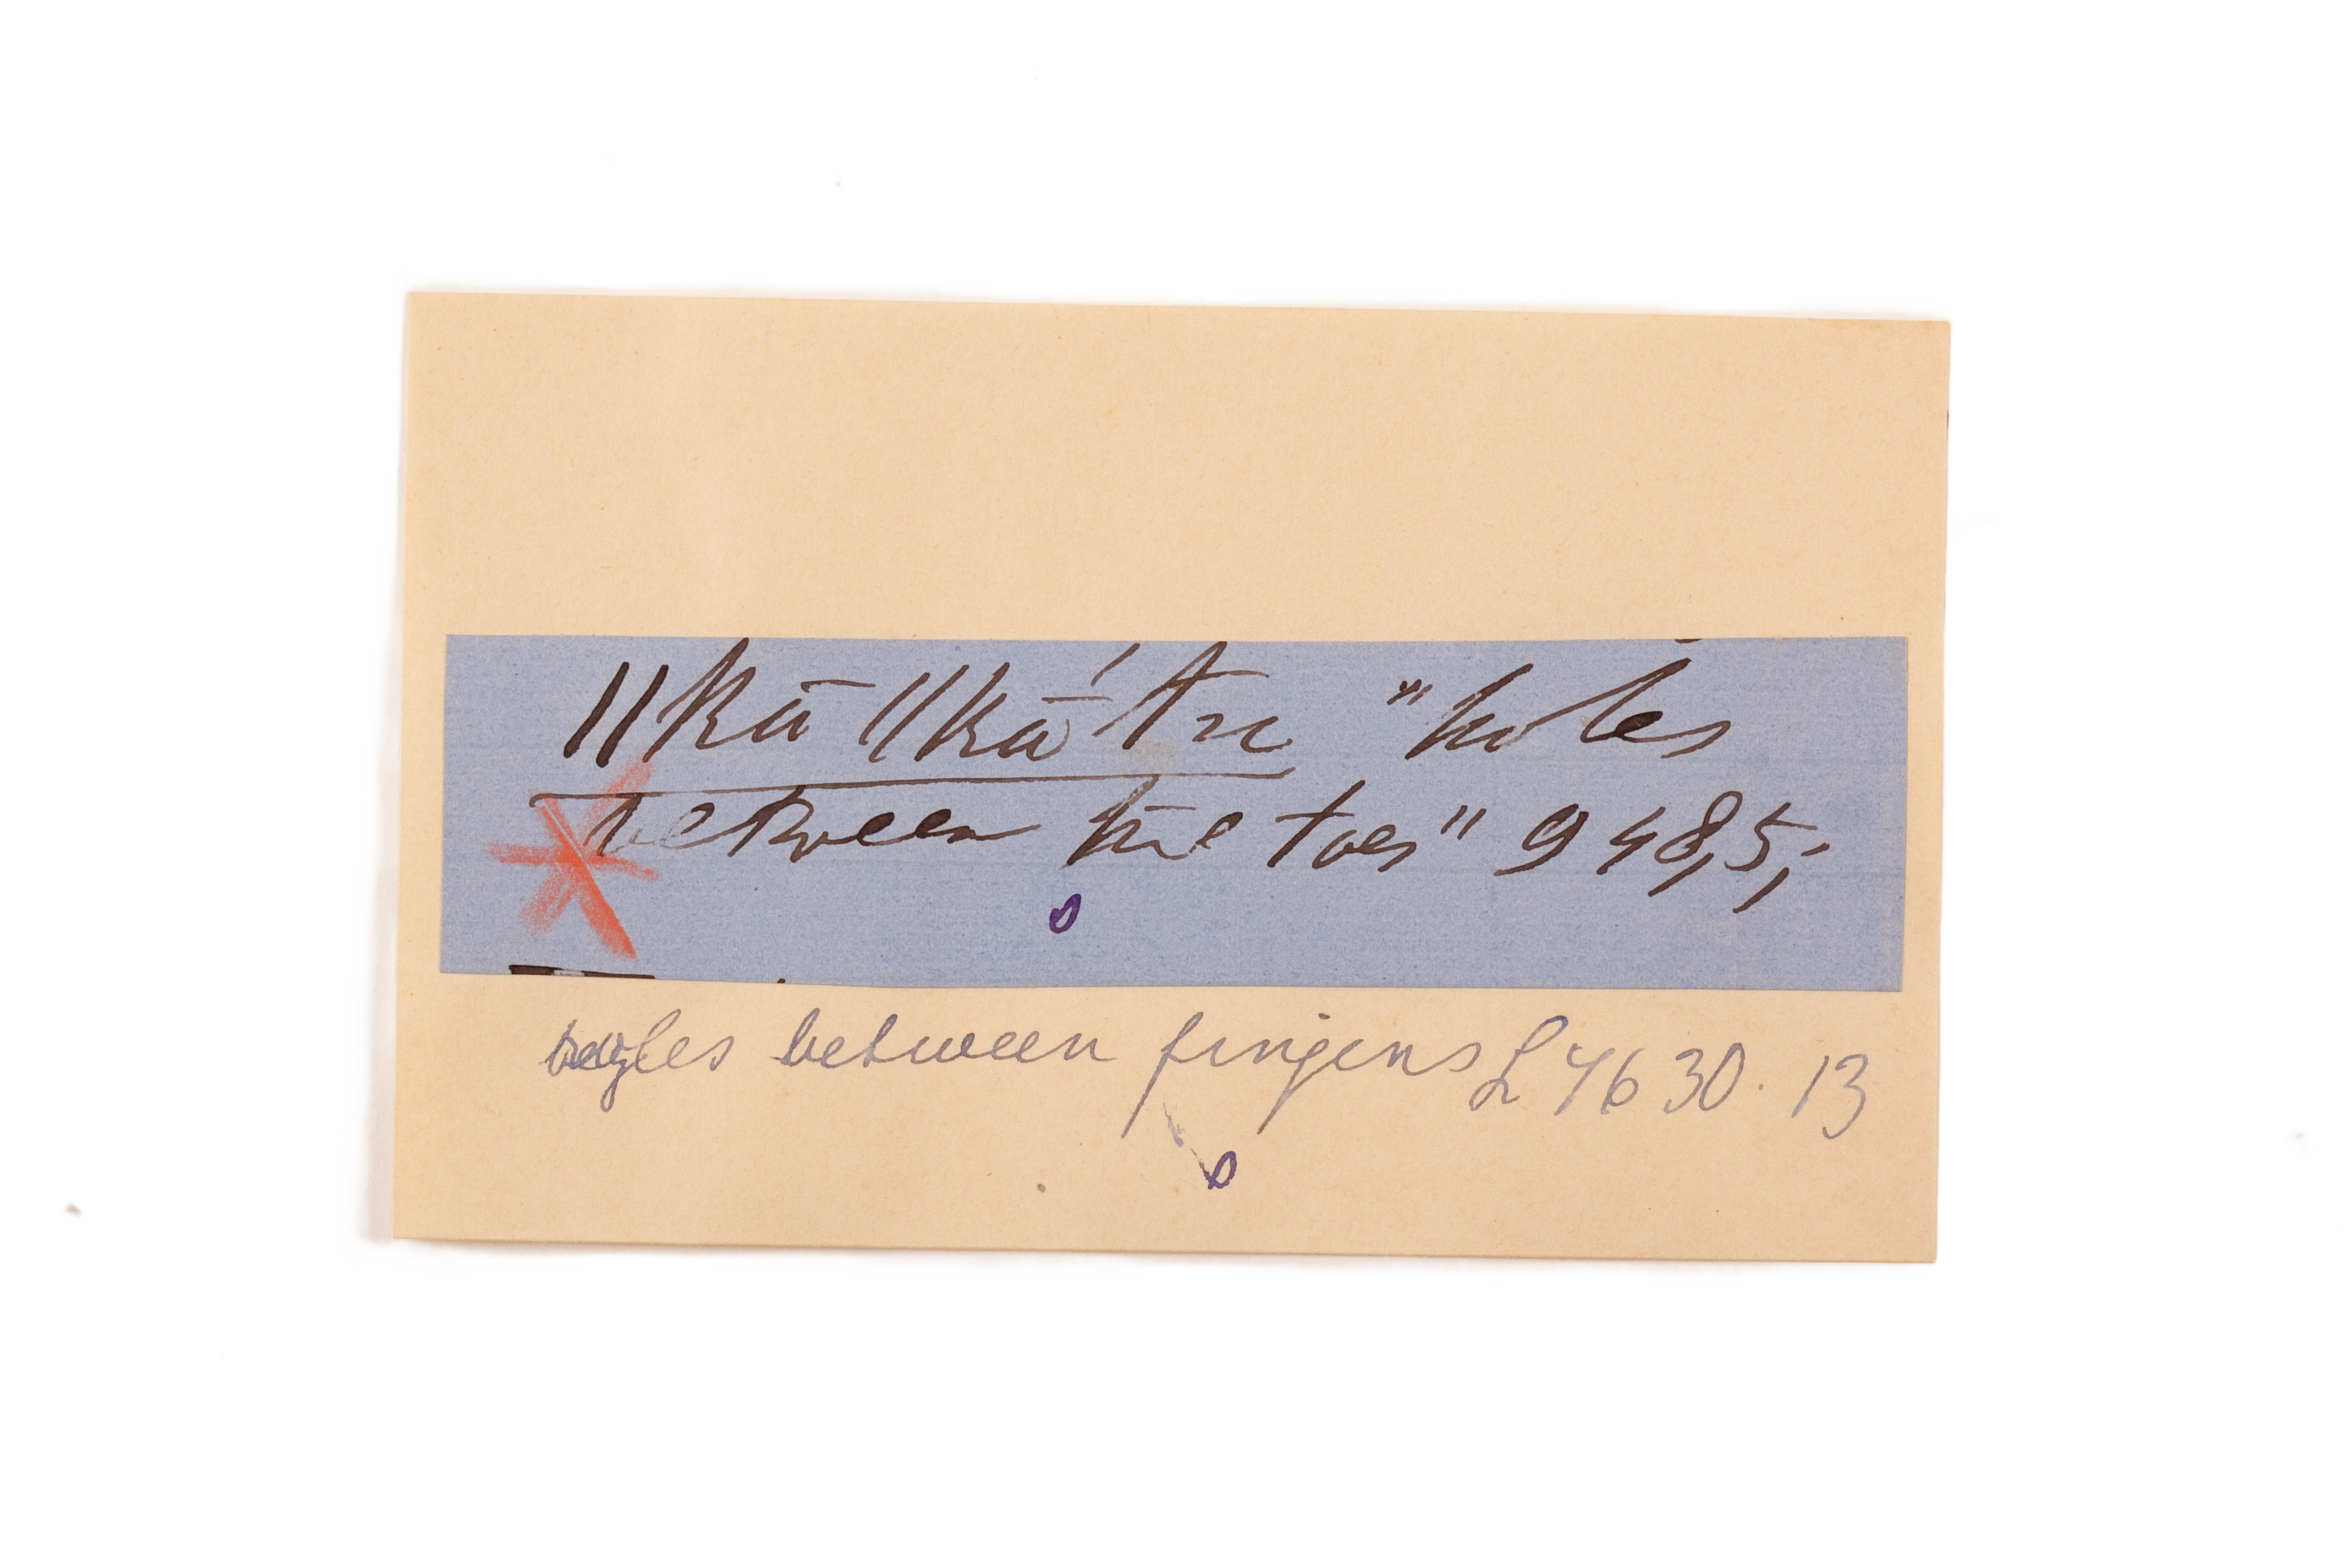 ǁkā ǁkā́ tu "holes
between the toes" 948,5;
between fingers L 4630. 13